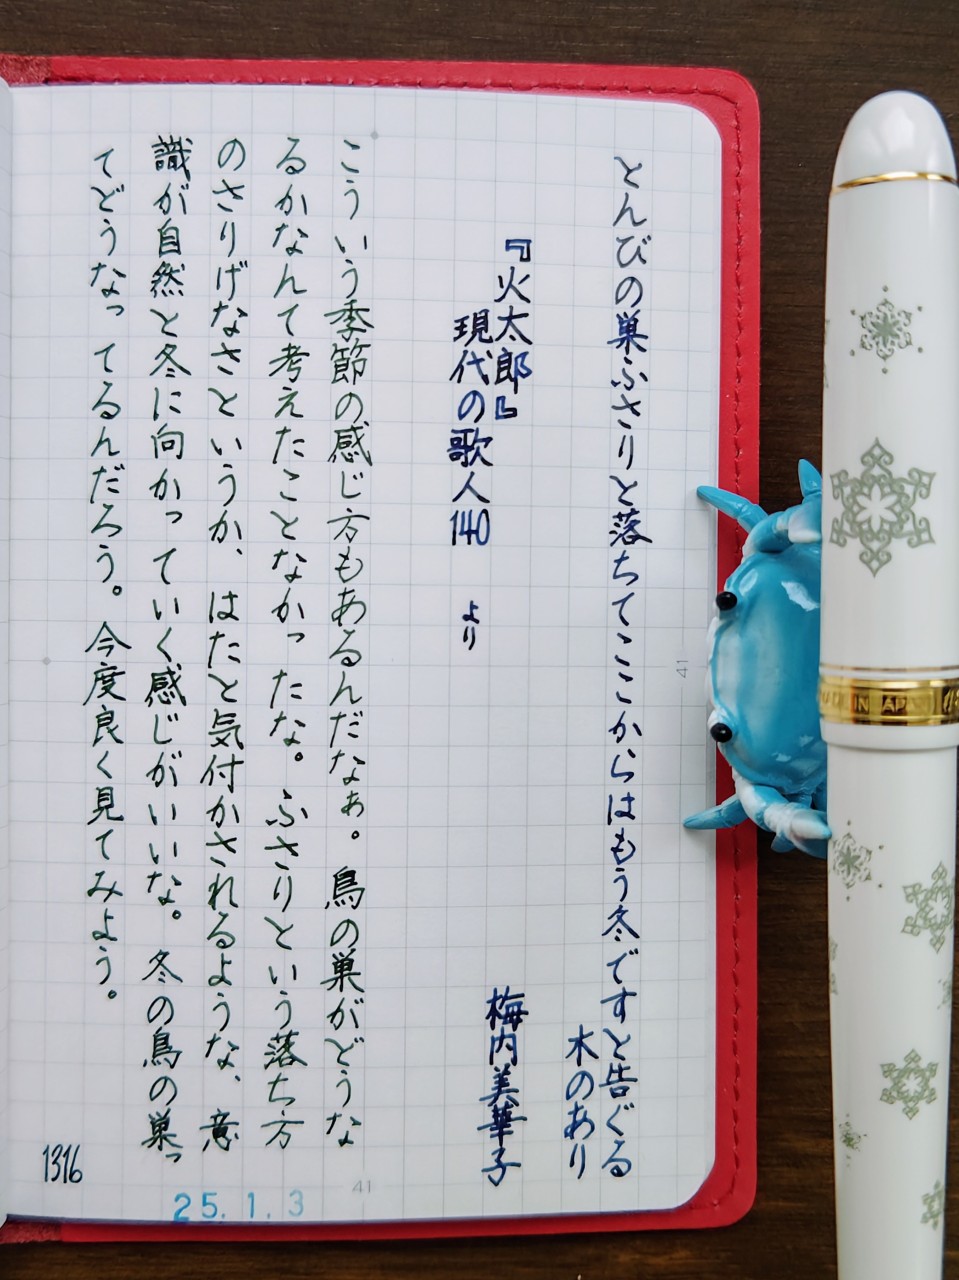 とんびの巣ふさりと落ちてここからはもう冬ですと告ぐる
木のあり
『火太郎』
梅内美華子
現代の歌人140
より
こういう季節の感じ方もあるんだなぁ。鳥の巣がどうな
るかなんて考えたことなかったな。ふさりという落ち方
のさりげなさというか、はたと気付かされるような、意
識が自然と冬に向かっていく感じがいいな。冬の鳥の巣っ
てどうなってるんだろう。今度良く見てみよう。
1316
25.1.3
41
41
IN JAPAN